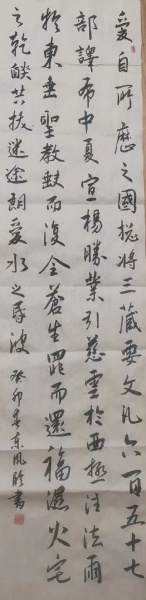 爱自所历之國揔将三藏要文凡六百五十七
部譯布中夏宣揚勝業引慈雲於西極注法雨
於東垂聖教缺而復全蒼生罪而還福濕火宅
之乾燄共拔迷途朗爱水之昏波 癸卯春东风 書